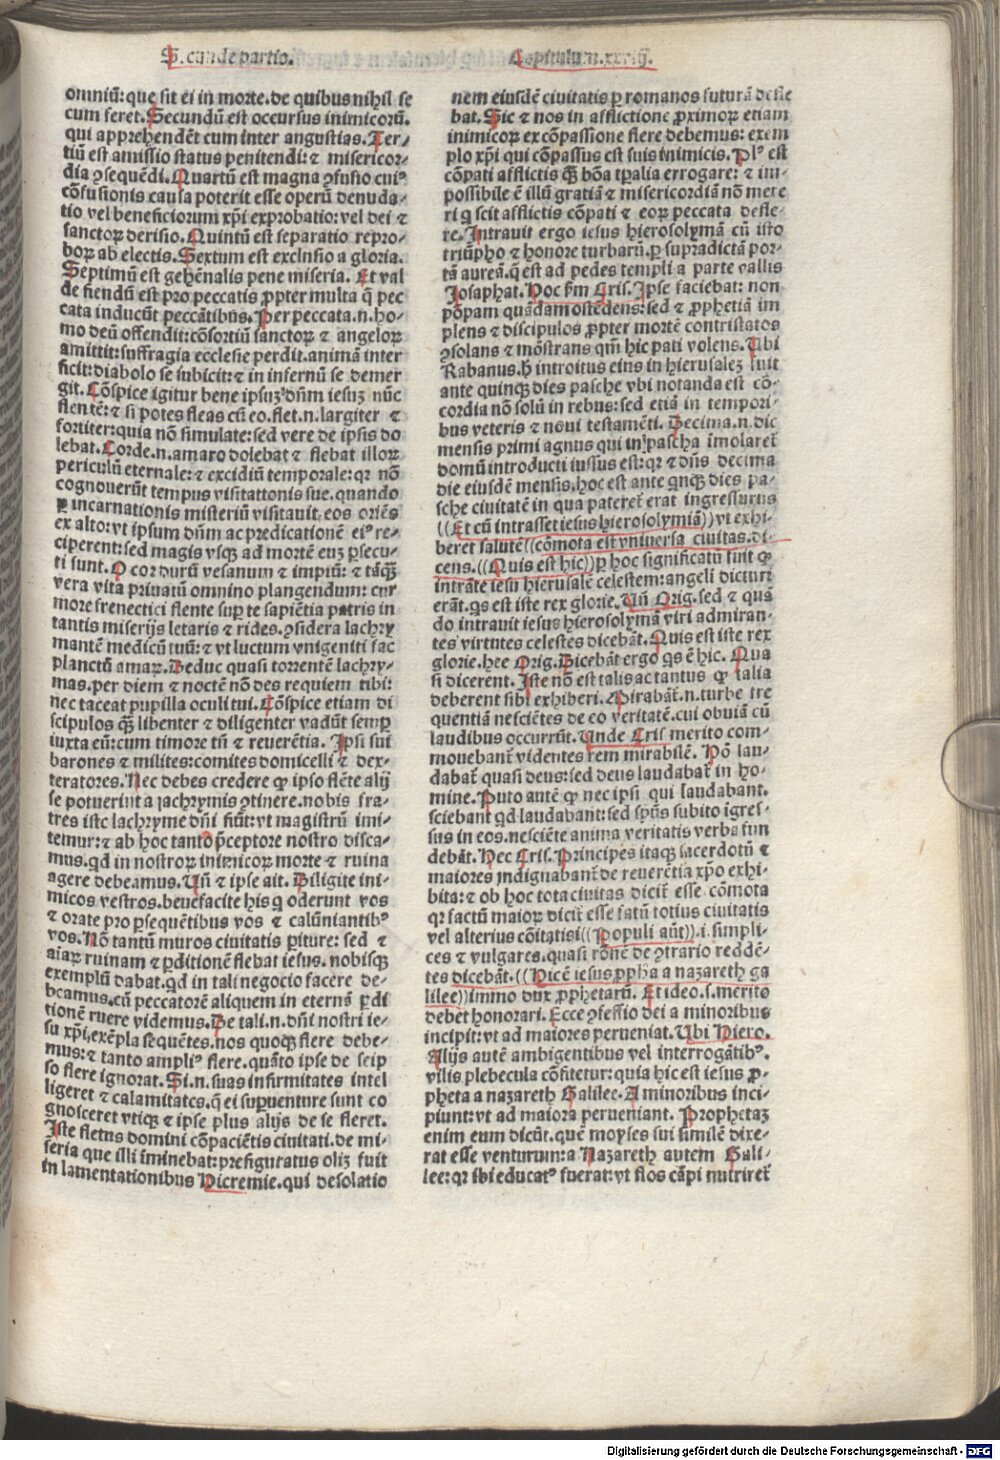 S.cunde partis.
Capitulum.xxviij.
omniū: que sit ei in morte.de quibus nihil se
cum feret. Secundū est occursus inimicorū.
qui apprehendēt cum inter angustias. Ter/
tiū est amissio status penitendi: ⁊ misericor/
dia ꝯsequēdi. Quartū est magna ꝯfusio cuiꝰ
cōfusionis causa poterit esse operū denuda/
tio vel beneficiorum xp̄i exprobatio: vel dei ⁊
sanctoꝝ derisio. Quintū est separatio repro/
boꝝ ab electis. Sextum est exclusio a gloria.
Septimū est gehēnalis pene miseria. Et val
de flendū est pro peccatis ꝓpter multa q̄ pec
cata inducūt peccātibus. Per peccata.n.ho/
mo deū offendit: cōsortiū sanctoꝝ ⁊ angeloꝝ
amittit: suffragia ecclesie perdit. animā inter
ficit: diabolo se subicit: ⁊ in infernū se demer
git. Cōspice igitur bene ipsuꝫ dn̄m iesuꝫ nūc
flentē: ⁊ si potes fleas cū eo. flet.n.largiter ⁊
fortiter: quia nō simulate: sed vere de ipsis do
lebat. Corde.n.amaro dolebat ⁊ flebat illoꝝ
periculū eternale: ⁊ excidiū temporale: qꝛ nō
cognouerūt tempus visitationis sue. quando
ꝑ incarnationis misteriū visitauit eos oriēs
ex alto: vt ipsum dn̄m ac predicationē eiꝰ re/
ciperent: sed magis vsqꝫ ad mortē euꝫ ꝑsecu/
ti sunt. O cor durū vesanum ⁊ impiū: ⁊ tāqꝫ̄
vera vita priuatū omnino plangendum: cur
more frenectici flente suꝑ te sapiētia patris in
tantis miserijs letaris ⁊ rides. ꝯsidera lachry
mantē medicū tuū: ⁊ vt luctum vnigeniti fac
planctū amaꝝ. Deduc quasi torrentē lachry/
mas.per diem ⁊ noctē nō des requiem tibi:
nec taceat pupilla oculi tui. Cōspice etiam di
scipulos qꝫ̄ libenter ⁊ diligenter vadūt semꝑ
iuxta eū: cum timore tn̄ ⁊ reuerētia. Ipsi sūt
barones ⁊ milites: comites domicelli ⁊ dex/
teratores. Nec debes credere ꝙ ipso flēte alij
se potuerint a lachrymis ꝯtinere. nobis fra/
tres iste lachryme dn̄i fiūt: vt magistrū imi/
temur: ⁊ ab hoc tanto p̄ceptore nostro disca/
mus.qd̄ in nostroꝝ inimicoꝝ morte ⁊ ruina
agere debeamus. Un̄ ⁊ ipse ait. Diligite ini/
micos vestros. benefacite his q̄ oderunt vos
⁊ orate pro ꝑsequētibus vos ⁊ calūniantibꝰ
vos. Nō tantū muros ciuitatis ꝑiture: sed ⁊
aīaꝝ ruinam ⁊ ꝑditionē flebat iesus. nobisqꝫ
exemplū dabat. qd̄ in tali negocio facere de/
beamus. cū peccatorē aliquem in eternā ꝑdi
tionē ruere videmus. De tali.n.dn̄i nostri ie/
su xp̄i.exēpla sequētes. nos quoqꝫ flere debe/
mus: ⁊ tanto ampliꝰ flere. quāto ipse de seip
so flere ignorat. Si.n.suas infirmitates intel
ligeret ⁊ calamitates. q̄ ei suꝑuenture sunt co
gnosceret vtiqꝫ ⁊ ipse plus alijs de se fleret.
Iste fletus domini cōpaciētis ciuitati. de mi/
seria que illi īminebat: prefiguratus oliꝫ fuit
in lamentationibus Hieremie. qui desolatio
nem eiusdē ciuitatis ꝑ romanos futurā defle
bat. Sic ⁊ nos in afflictione ꝓximoꝝ etiam
inimicoꝝ ex cōpassione flere debemus: exem
plo xp̄i qui cōpassus est suis inimicis. Plꝰ est
cōpati afflictis qꝫ̄ bōa tp̄alia errogare: ⁊ im/
possibile ē illū gratiā ⁊ misericordiā nō mere
ri q̄ scit afflictis cōpati ⁊ eoꝝ peccata defle/
re. Intrauit ergo iesus hierosolymā cū isto
triūpho ⁊ honore turbarū. ꝑ supradictā por/
tā aureā. q̄ est ad pedes templi a parte vallis
Josaphat. Hoc ſm Cris. Ipse faciebat: non
pōpam quādam ostēdens: sed ⁊ ꝓphetiā im
plens ⁊ discipulos ꝓpter mortē contristatos
ꝯsolans ⁊ mōstrans qm̄ hic pati volens. Ubi
Rabanus. h̄ introitus eius in hierusaleꝫ fuit
ante quinqꝫ dies pasche vbi notanda est cō/
cordia nō solū in rebus: sed etiā in tempori/
bus veteris ⁊ noui testamēti. Decima.n.die
mensis primi agnus qui in pascha īmolaret̄
domū introducti iussus est: qꝛ ⁊ dn̄s decima
die eiusdē mensis. hoc est ante q̄nqꝫ dies pa/
sche ciuitatē in qua pateret̄ erat ingressurus
((Et cū intrasset iesus hierosolymiā)) vt exhi/
beret salutē ((cōmota est vniuersa ciuitas. di/
cens. ((Quis est hic)) ꝑ hoc significatū fuit ꝙ
intrāte iesu hierusalē celestem: angeli dicturi
erāt. q̄s est iste rex glorie. Un̄ Orig. sed ⁊ quā
do intrauit iesus hierosolymā viri admiran/
tes virtutes celestes dicebāt. Quis est iste rex
glorie. hec Orig. Dicebāt ergo q̄s ē hic. Qua
si dicerent. Iste nō est talis ac tantus ꝙ talia
deberent sibi exhiberi. Mirabāt̄.n. turbe fre
quentiā nesciētes de eo veritatē. cui obuiā cū
laudibus occurrūt. Unde Cris merito com/
mouebant̄ videntes rem mirabilē. Hō lau/
dabat̄ quasi deus: sed deus laudabat̄ in ho/
mine. Puto autē ꝙ nec ipsi qui laudabant.
sciebant qd̄ laudabant: sed sp̄us subito īgres/
sus in eos. nesciēte anima veritatis verba fun
debāt. Hec Cris. Principes itaqꝫ sacerdotū ⁊
maiores indignabant̄ de reuerētia xp̄o exhi/
bita: ⁊ ob hoc tota ciuitas dicit̄ esse cōmota
qꝛ factū maioꝝ dicit̄ esse fatū totius ciuitatis
vel alterius cōitatis ((Populi aūt)).i.simpli/
ces ⁊ vulgares. quasi rōnē de ꝯtrario reddē/
tes dicebāt. ((Hic ē iesus ꝓp̄ha a nazareth ga
lilee)) immo dux ꝓphetarū. Et ideo.s.merito
debet honorari. Ecce ꝯfessio dei a minoribus
incipit: vt ad maiores perueniat. Ubi Hiero.
Alijs autē ambigentibus vel interrogātibꝰ.
vilis plebecula cōfitetur: quia hic est iesus ꝓ/
pheta a nazareth Galilee. A minoribus inci/
piunt: vt ad maiora perueniant. Prophetaꝫ
enim eum dicūt. quē moyses sui similē dixe/
rat esse venturum: a Nazareth autem Gali/
lee: qꝛ ibi educatꝰ fuerat: vt flos cāpi nutriret̄
Digitalisierung gefördert durch die Deutsche Forschungsgemeinschaft - DFG